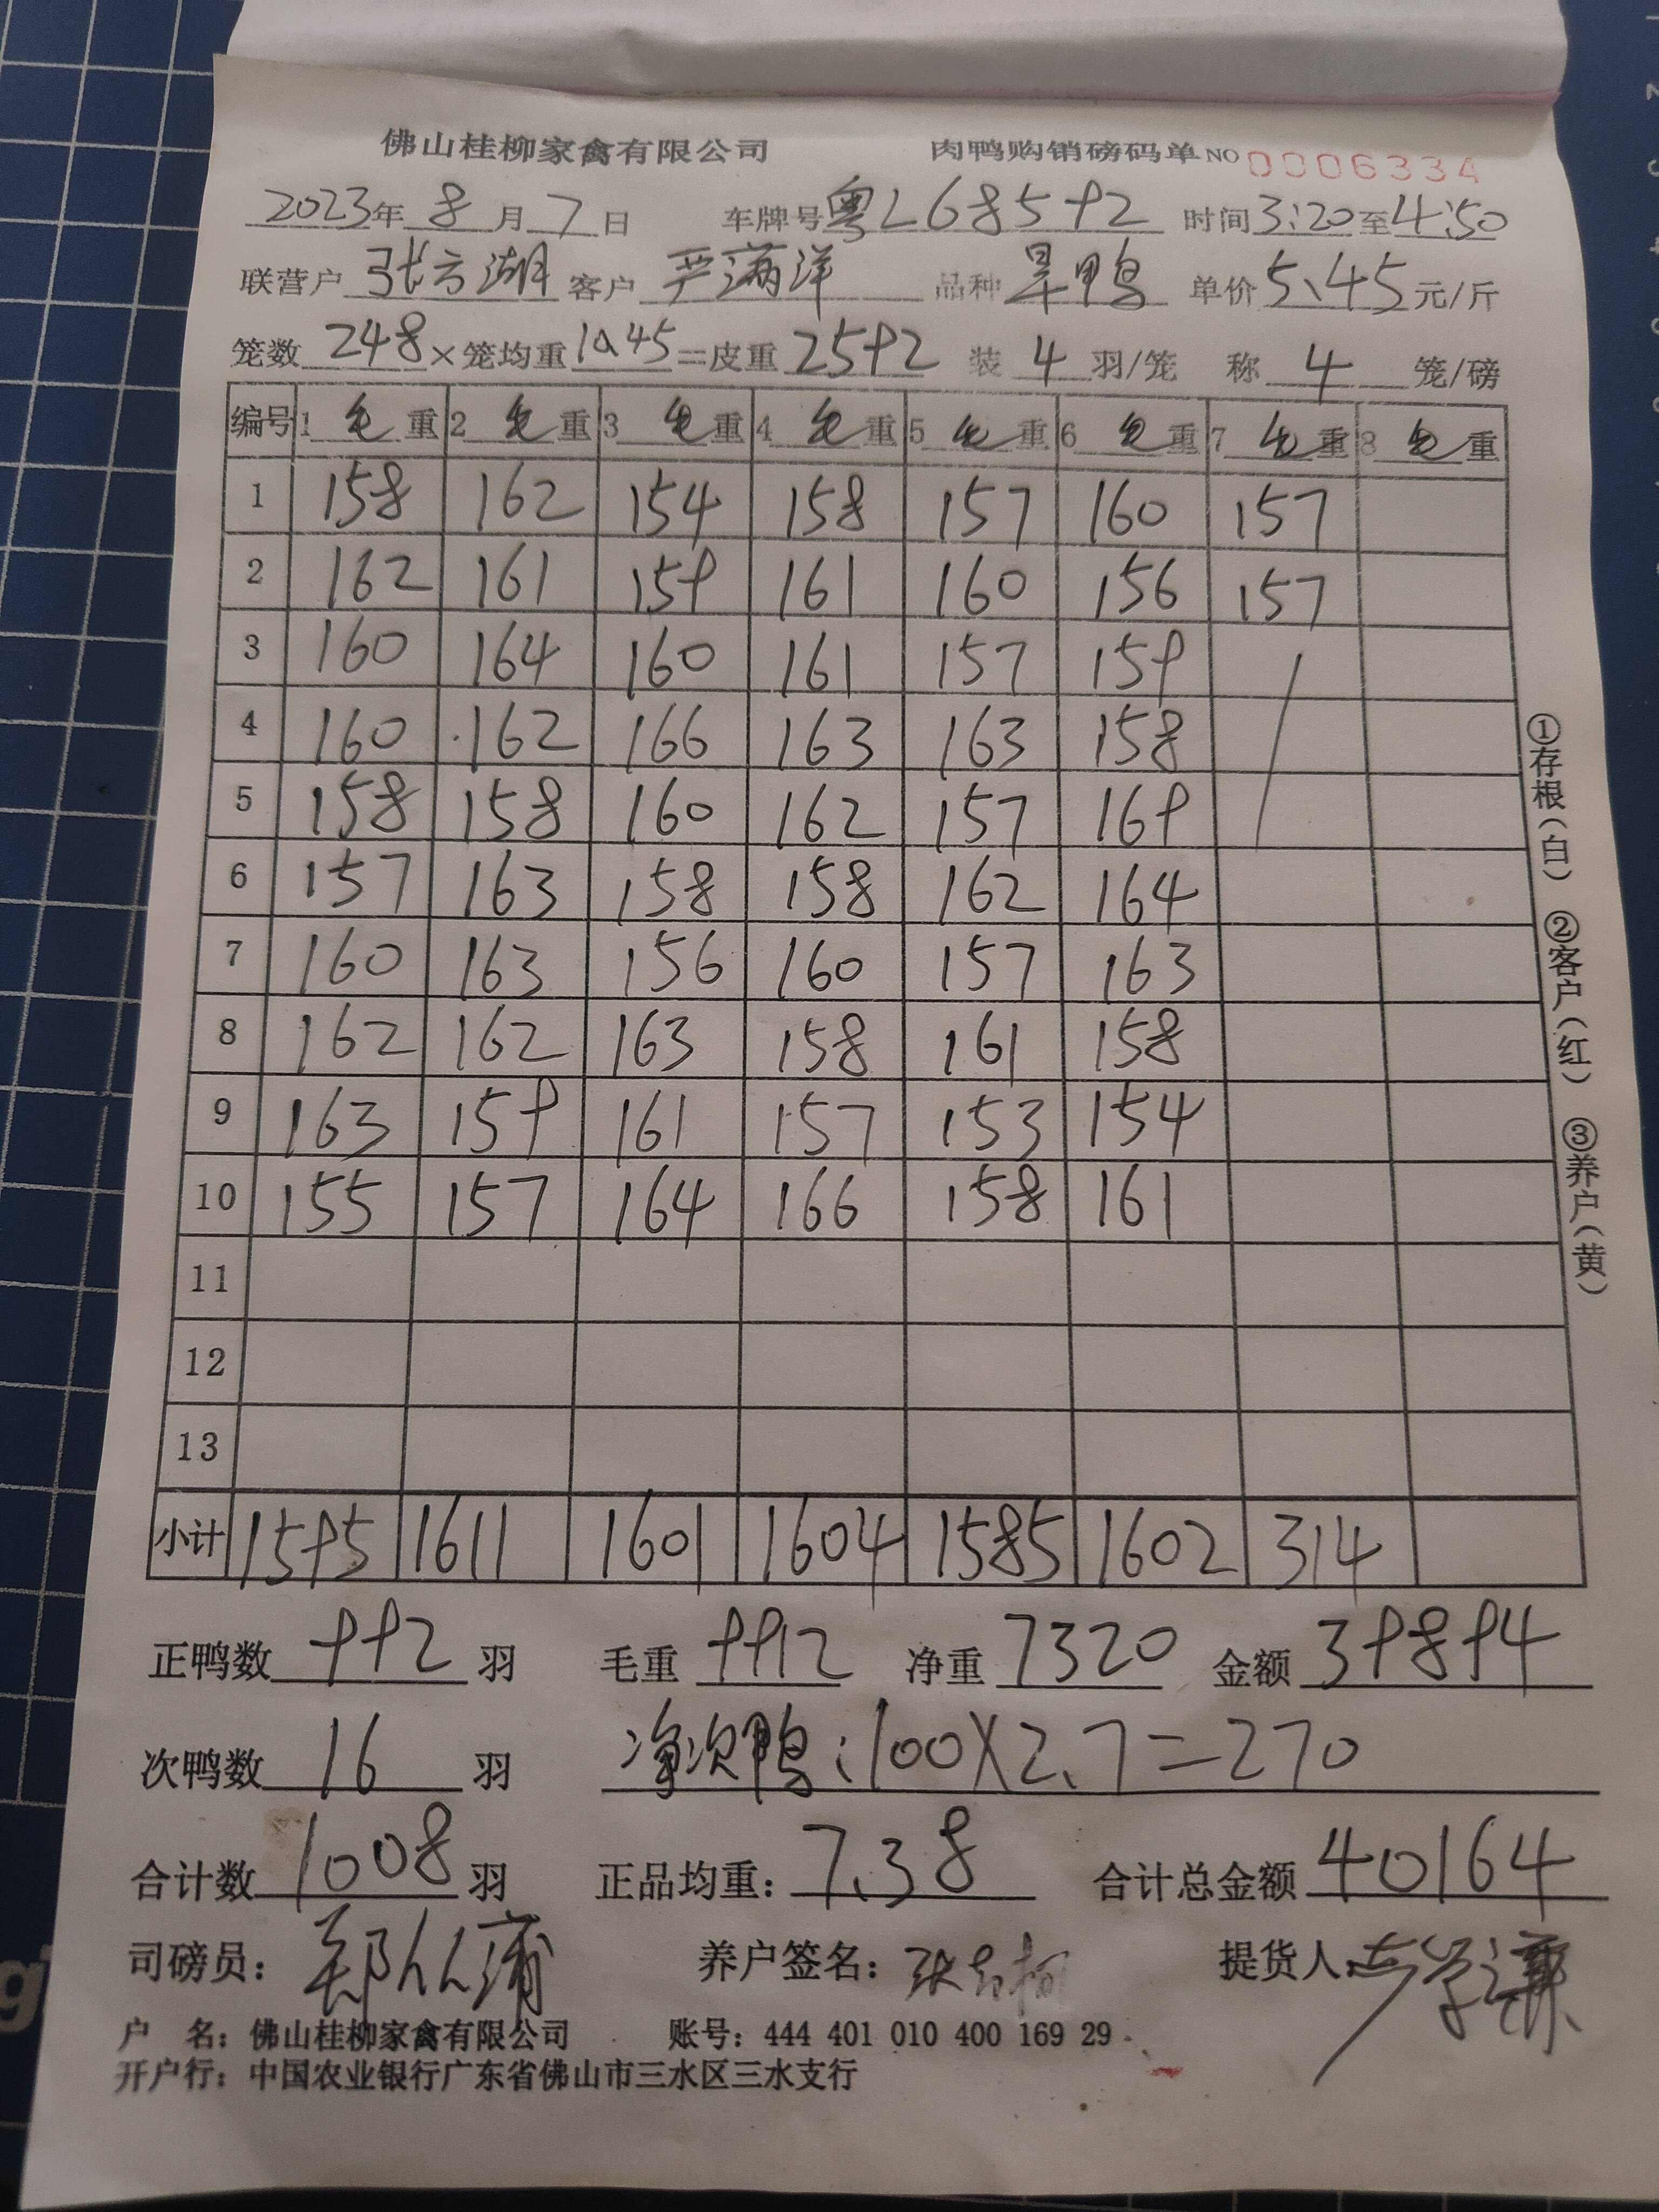 佛山桂柳家禽有限公司 肉鸭购销磅码单 NO 0006334
2023年 8月 7日 车牌号 粤L68592 时间 3:20 至 4:50
联营户 张方湖 客户 严满洋 品种 旱鸭 单价 5.45 元/斤
笼数 248 × 笼均重 10.45 = 皮重 2592 装 4 羽/笼 称 4 笼/磅
编号 1 毛 重 2 毛 重 3 毛 重 4 毛 重 5 毛 重 6 毛 重 7 毛 重 8 毛 重
1 158 162 154 158 157 160 157
2 162 161 159 161 160 156 157
3 160 164 160 161 157 159
4 160 162 166 163 163 158
5 158 158 160 162 157 169
6 157 163 158 158 162 164
7 160 163 156 160 157 163
8 162 162 163 158 161 158
9 163 159 161 157 153 154
10 155 157 164 166 158 161
11
12
13
小计 1595 1611 1601 1604 1585 1602 314
正鸭数 992 羽 毛重 9912 净重 7320 金额 39894
次鸭数 16 羽 净次鸭:100X2.7=270
合计数 1008 羽 正品均重: 7.38 合计总金额 40164
司磅员: 养户签名: 提货人:
户 名: 佛山桂柳家禽有限公司 账号: 444 401 010 400 169 29
开户行: 中国农业银行广东省佛山市三水区三水支行
①存根(白) ②客户(红) ③养户(黄)